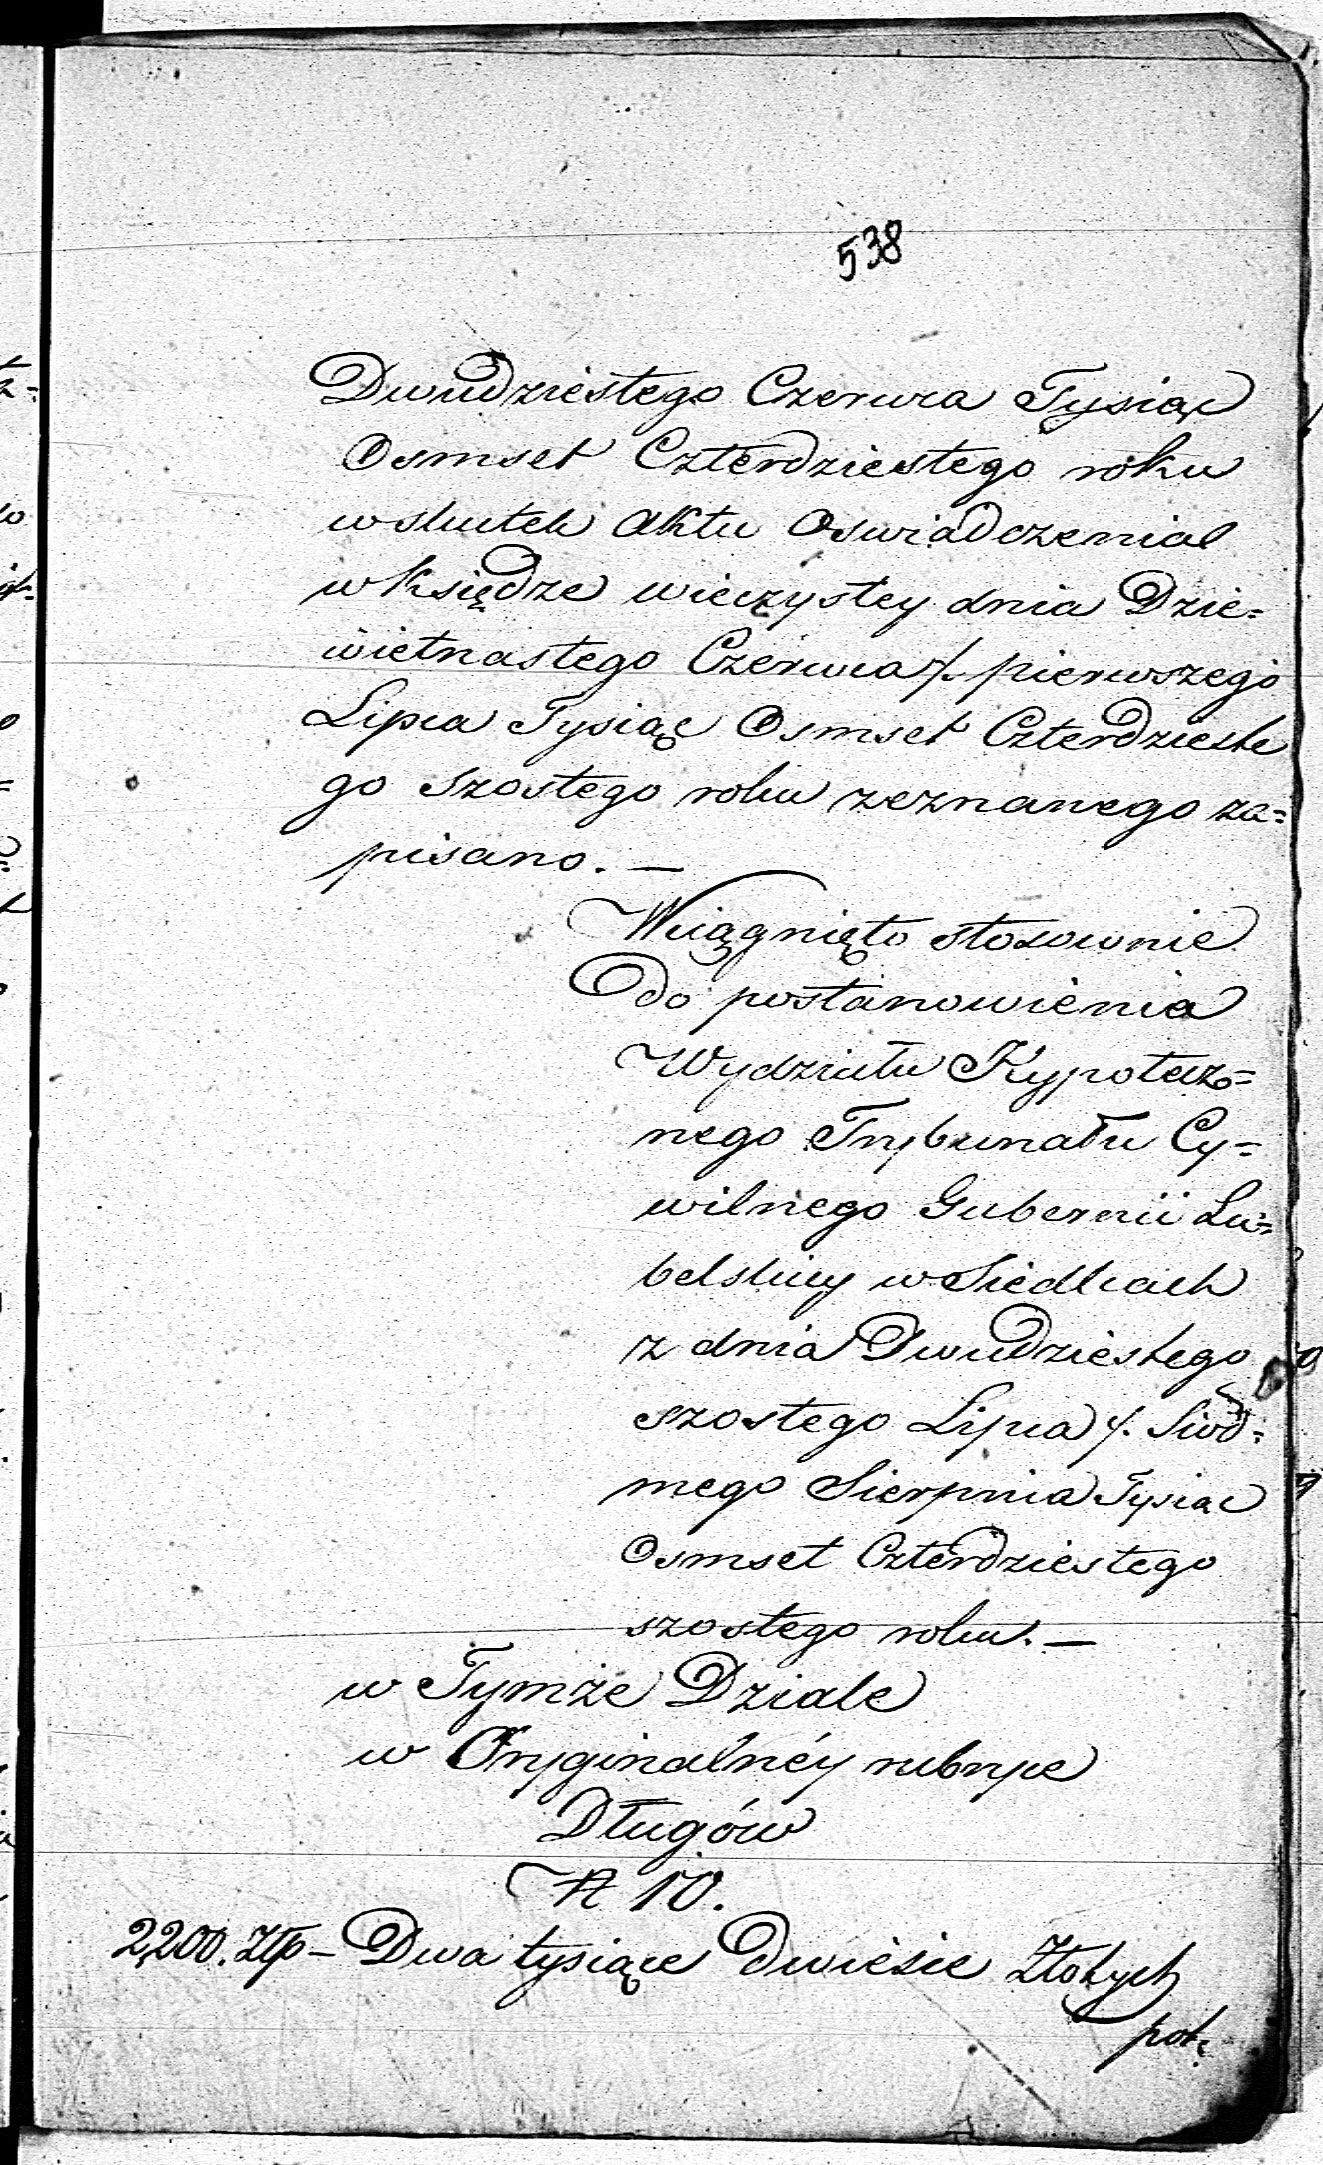 538
Dwudziestego Czerwca Tysiąc
Osmset Czterdziestego roku
wskutek Aktu Oswiadczenia
w Księdze wieczystey dnia Dzie=
wietnastego Czerwca /. pierwszego
Lipca Tysiąc Osmset Czterdzieste
go szostego roku zeznanego za=
pisano. —
Wciągnięto stosownie
do postanowienia
Wydziału Hypotecz=
nego Trybunału Cy=
wilnego Gubernii Lu=
belskiey w Siedlcach
z dnia Dwudziestego
szostego Lipca /. Siód=
mego Sierpnia Tysiąc
Osmset Czterdziestego
szostego roku. —
w Tymże Dziale
w Oryginalnéy rubryce
Długów
N 10.
2,200. Złp – Dwa tysiące dwieście Złotych
pol: